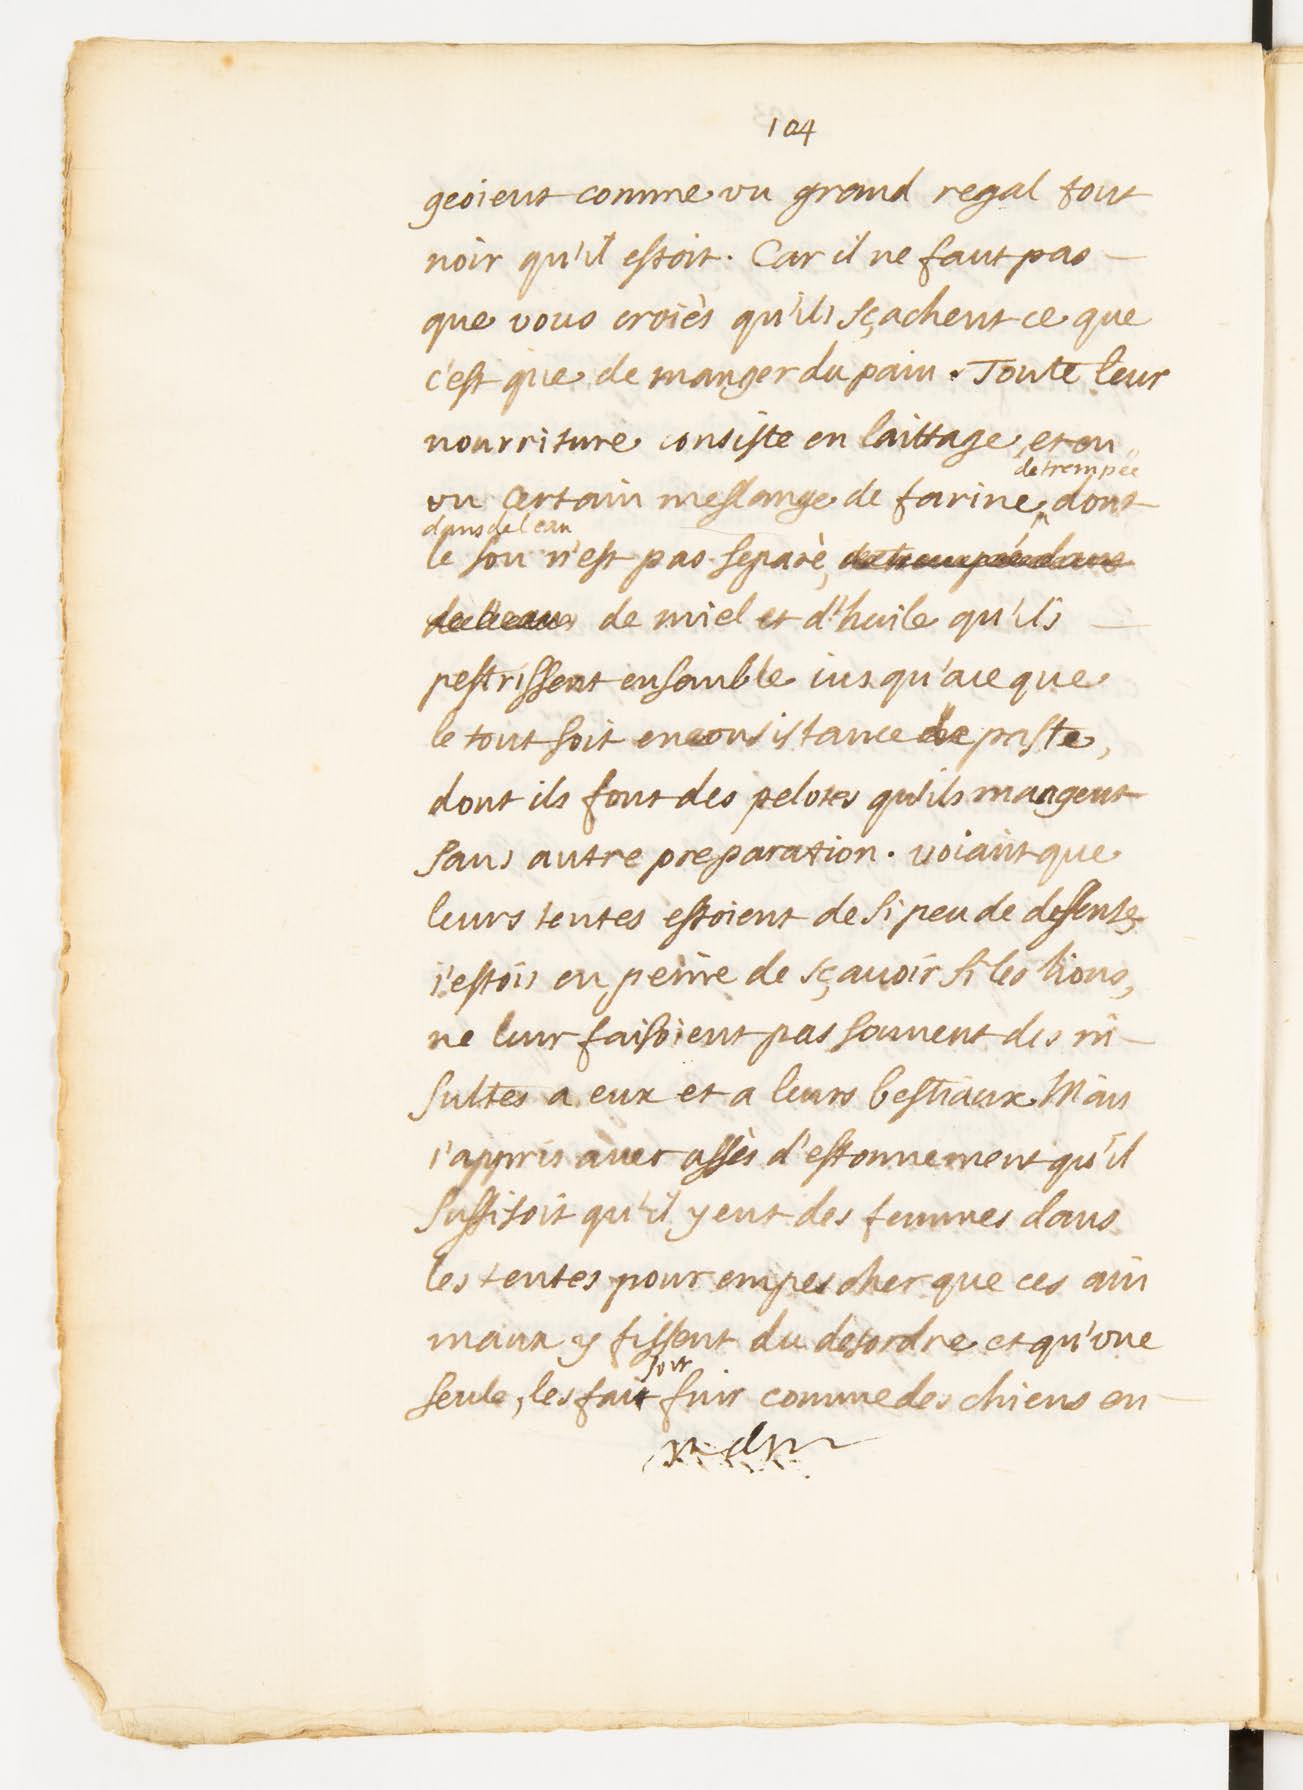 104
geoient comme vn grand regal tout
noir qu'il estoit. Car il ne faut pas
que vous croiés qu'ils sçachent ce que
c'est que de manger du pain. Toute leur
nourriture consiste en laittage, et en
detrempée
vn certain meslange de farine, dont
dans de l'eau
le son n'est pas separé, detrempée dans
de l'eau de miel et d'huile qu'ils
pestrissent ensemble iusqu'ace que
le tout soit en consistance de paste,
dont ils font des pelotes qu'ils mangent
sans autre preparation. voiant que
leurs tentes estoient de si peu de deffense,
i'estois en peine de sçauoir si les lions,
ne leur faisoient pas souuent des in-
sultes a eux et a leurs bestiaux. Mais
i'appris auec assés d'estonnement qu'il
suffisoit qu'il y eut des femmes dans
les tentes pour empescher que ces ani
maux y fissent du desordre et qu'vne
soit
seule, les fait fuir comme des chiens en-